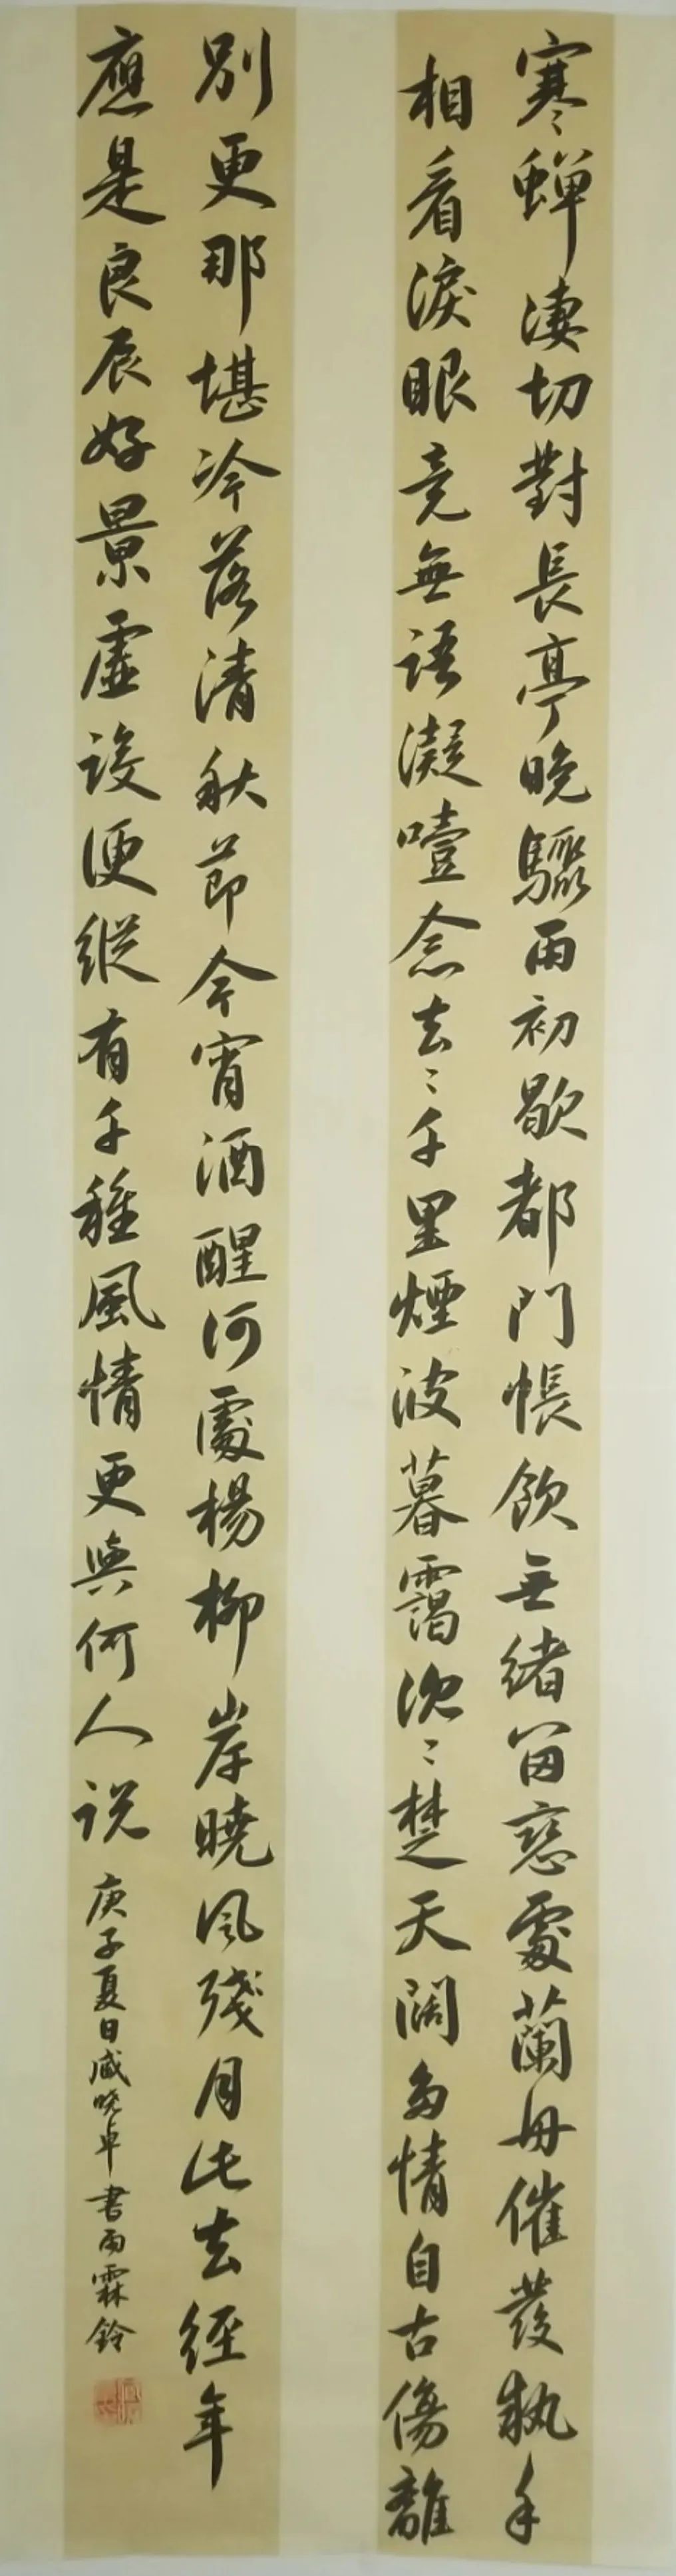 寒蟬淒切對長亭晚驟雨初歇都門帳飲無緒留戀處蘭舟催發執手
相看淚眼竟無語凝噎念去〻千里煙波暮靄沈〻楚天闊多情自古傷離
別更那堪冷落清秋節今宵酒醒何處楊柳岸曉风殘月此去經年
應是良辰好景虛設便縱有千種風情更與何人説
庚子夏日臧曉卓書雨霖鈴